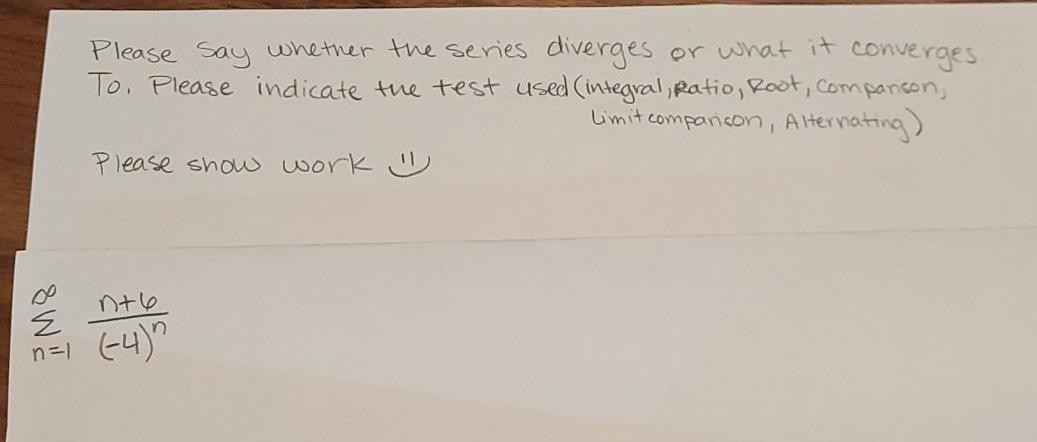 Please Say whether the series diverges or what it converges
To. Please indicate the test used (integral, Ratio, Root, Comparison,
Limit comparison, Alternating)
Please show work :)
∞
Σ n+6/(-4)^n
n=1